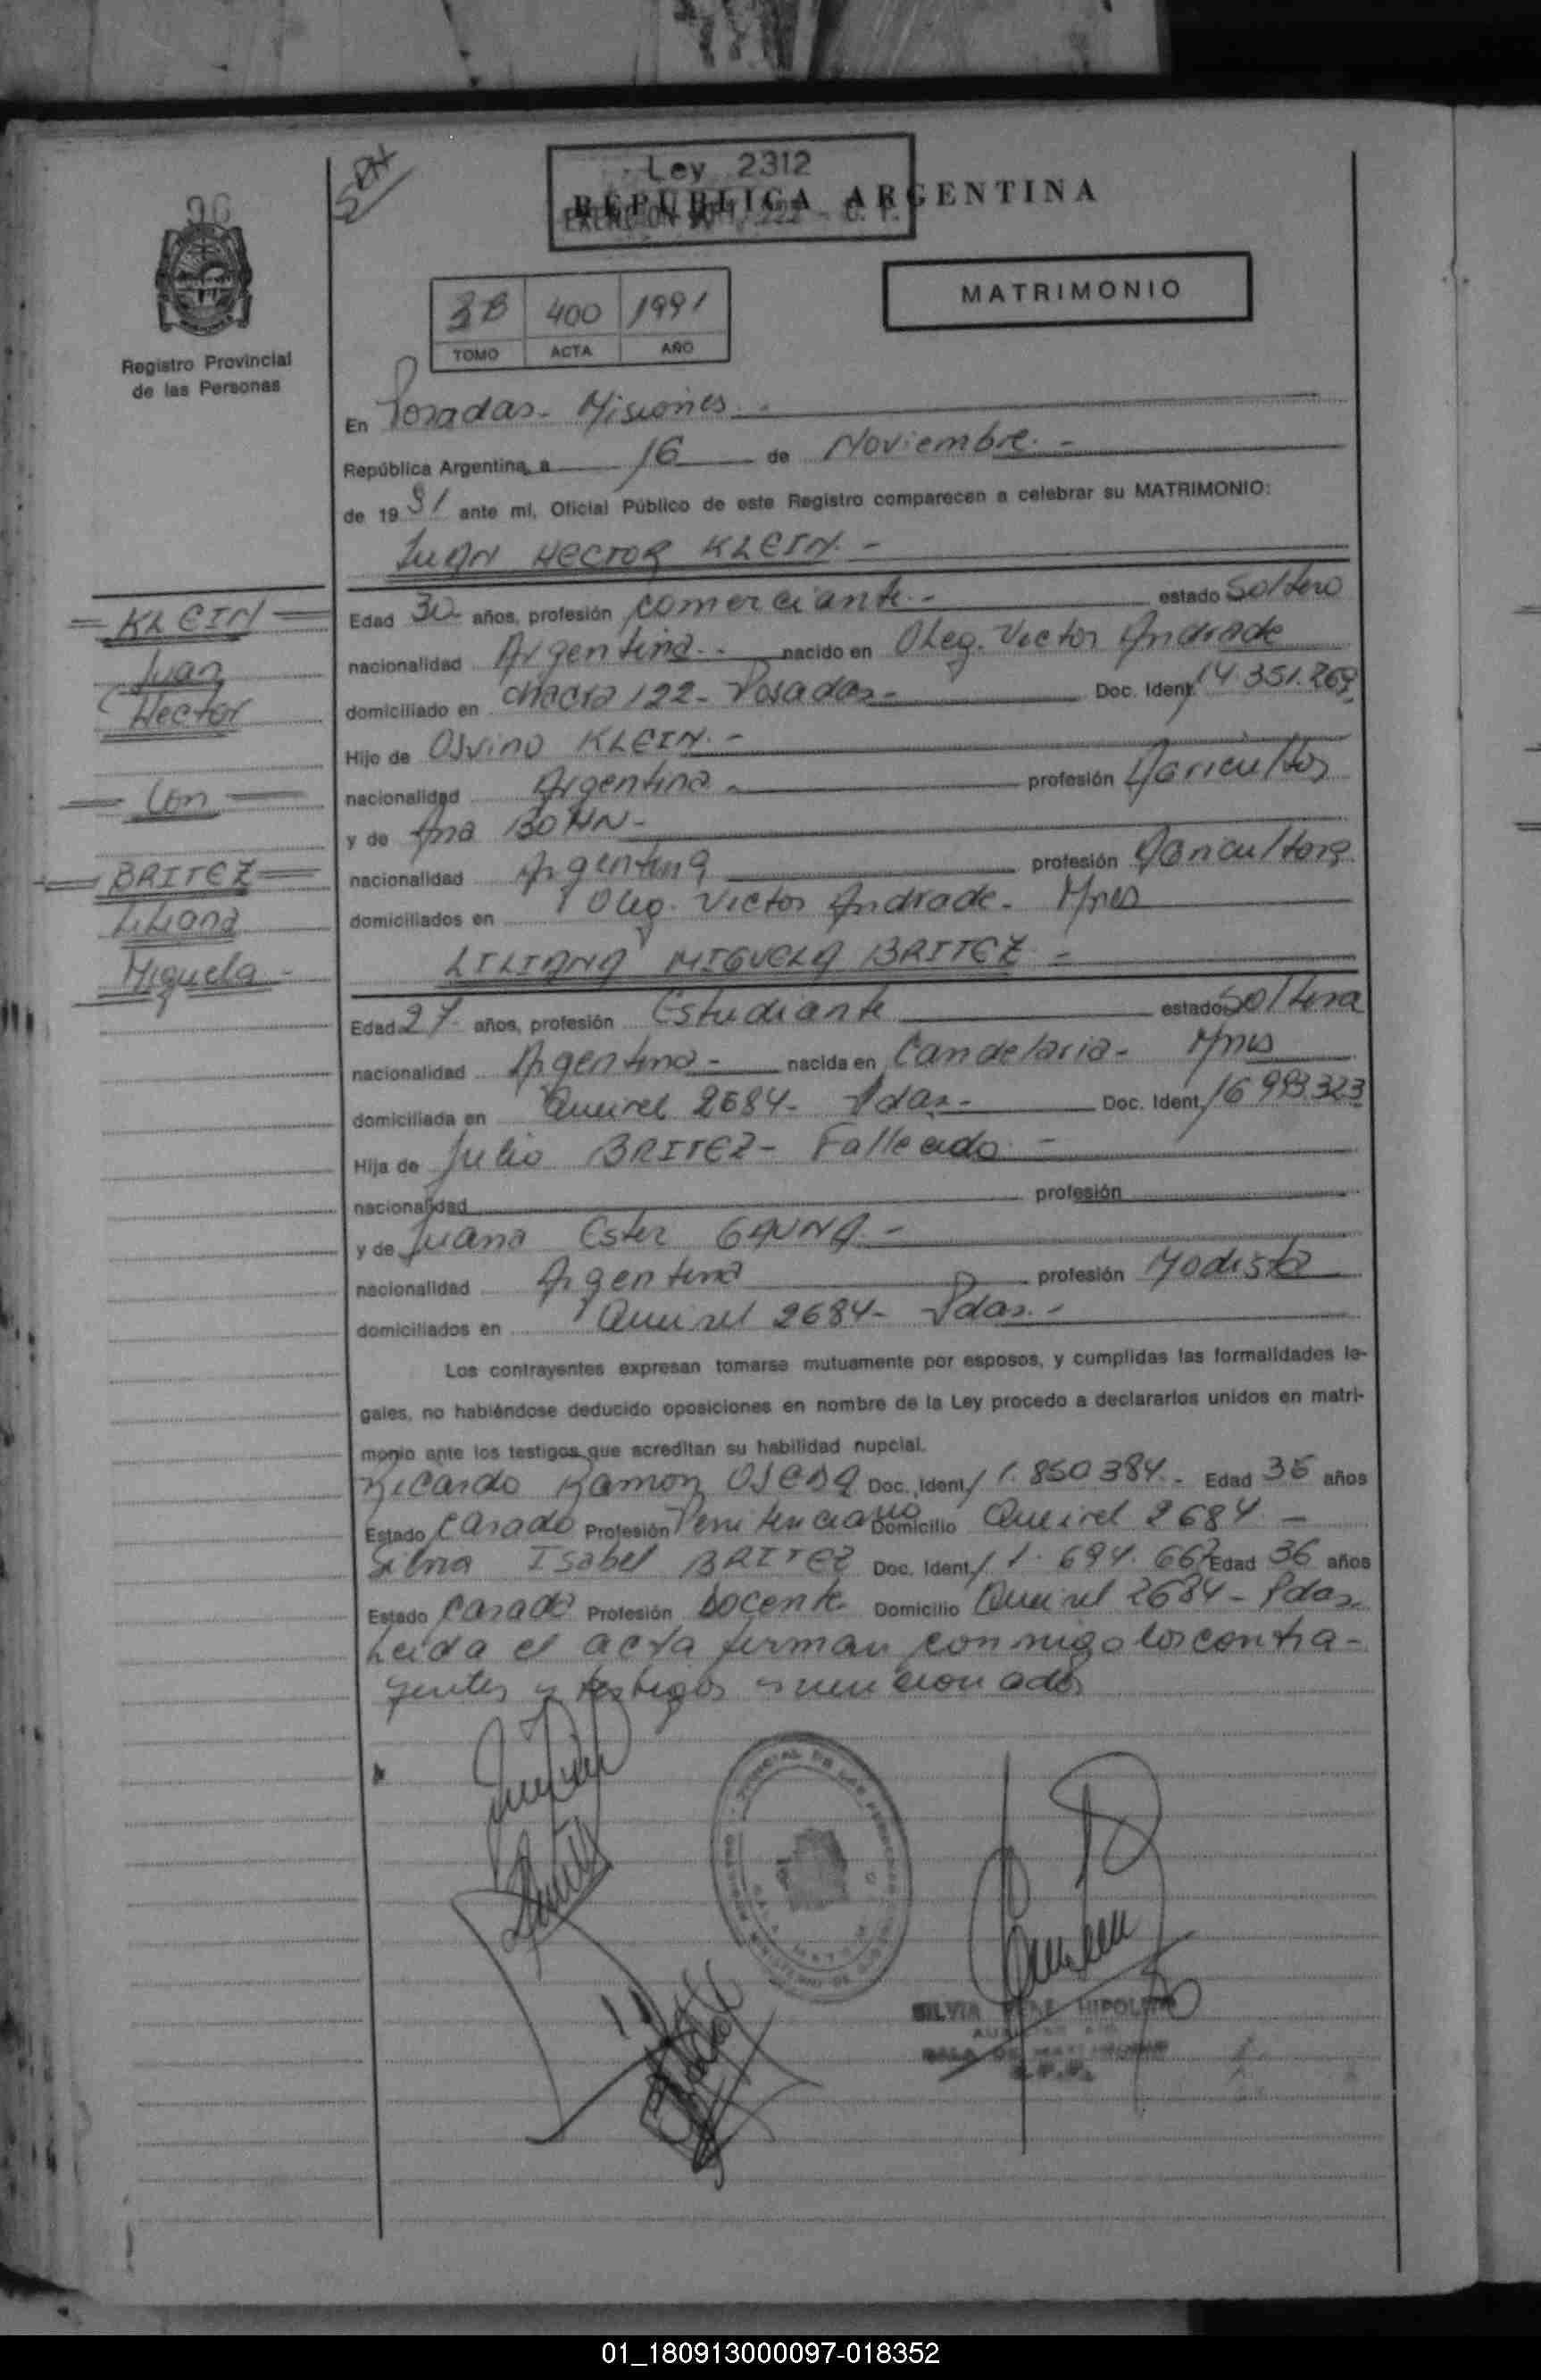 96
Ley 2312
REPUBLICA ARGENTINA
MATRIMONIO
3B 400 1991
TOMO ACTA AÑO
Registro Provincial
de las Personas
En Posadas - Misiones -
República Argentina, a 16 de Noviembre -
de 19 91 ante mi, Oficial Público de este Registro comparecen a celebrar su MATRIMONIO:
JUAN HECTOR KLEIN -
KLEIN
Juan
Hector
Con
BRITEZ
Liliana
Miguela -
Edad 30 años, profesión comerciante - estado Soltero
nacionalidad Argentina - nacido en Oleg. Victor Andrade
domiciliado en chacra 122 - Posadas - Doc. Ident. 14.351.269
Hijo de Osvino KLEIN -
nacionalidad Argentina - profesión Agricultor
y de Ana BOHN -
nacionalidad Argentina profesión Agricultora
domiciliados en Oleg. Victor Andrade - Mnes
LILIANA MIGUELA BRITEZ -
Edad 27 años, profesión Estudiante estado Soltera
nacionalidad Argentina - nacida en Candelaria - Mnes
domiciliada en Queirel 2684 - Pdas - Doc. Ident. 16 993.323
Hija de Julio BRITEZ - Fallecido -
nacionalidad profesión
y de Juana Ester GAUNA -
nacionalidad Argentina profesión Modista
domiciliados en Queirel 2684 - Pdas -
Los contrayentes expresan tomarse mutuamente por esposos, y cumplidas las formalidades le-
gales, no habiéndose deducido oposiciones en nombre de la Ley procedo a declararlos unidos en matri-
monio ante los testigos que acreditan su habilidad nupcial.
Ricardo Ramon OJEDA Doc. Ident. 11.850384 - Edad 36 años
Estado Casado Profesión Penitenciario Domicilio Queirel 2684 -
Silvia Isabel BRITEZ Doc. Ident. 11.694.667 Edad 36 años
Estado Casada Profesión Docente Domicilio Queirel 2684 - Pdas
Leida el acta firman conmigo los contra-
yentes y testigos mencionados
SILVIA HIPOLITO
01_180913000097-018352